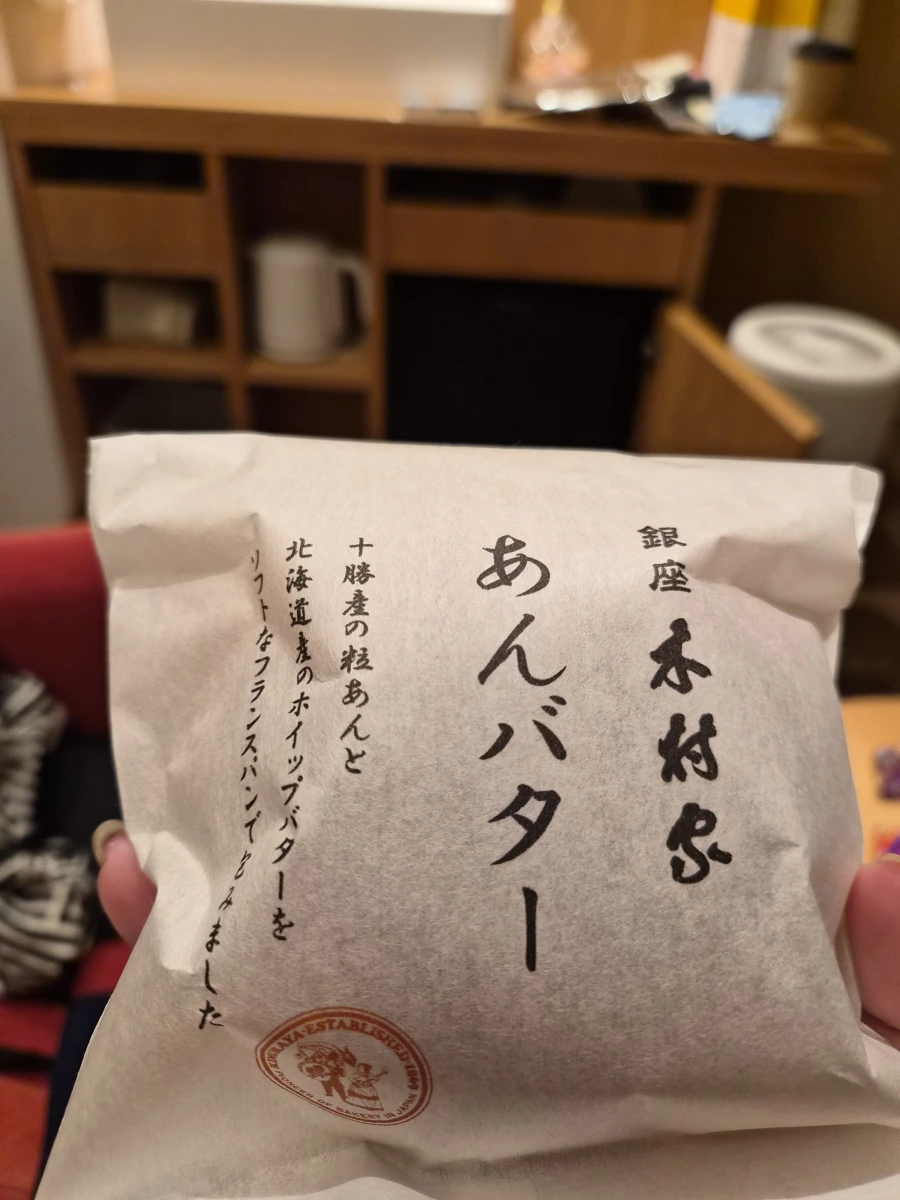 銀座 木村家
あんバター
十勝産の粒あんと
北海道産のホイップバターを
ソフトなフランスパンで包みました
KIMURAYA·ESTABLISHED 1869
PIONEER OF BAKERY IN JAPAN